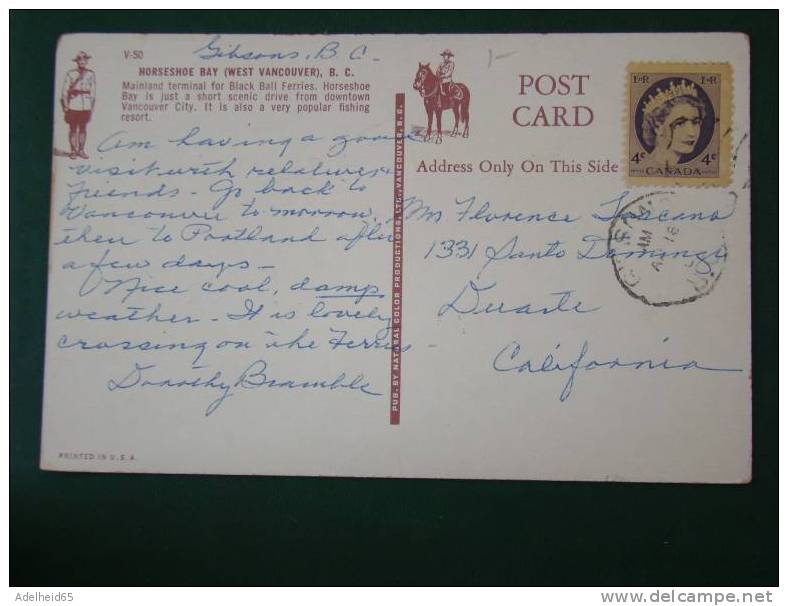 Gibsons, B. C.
V-50
HORSESHOE BAY (WEST VANCOUVER), B. C.
Mainland terminal for Black Ball Ferries. Horseshoe
Bay is just a short scenic drive from downtown
Vancouver City. It is also a very popular fishing
resort.
Am having a good
visit with relatives
friends - Go back to
Vancouver to-morrow,
then to Portland after
a few days -
Nice cool, damp
weather - It is lovely
crossing on the Ferries -
Dorothy Bramble
PRINTED IN U. S. A.
PUB. BY NATURAL COLOR PRODUCTIONS, LTD., VANCOUVER, B. C.
1-
POST
CARD
Address Only On This Side
E R E R
4¢ 4¢
CANADA
AM
16
Florence
1331 Santo Domingo
Duarte
California
Adelheid65
delcampe.net